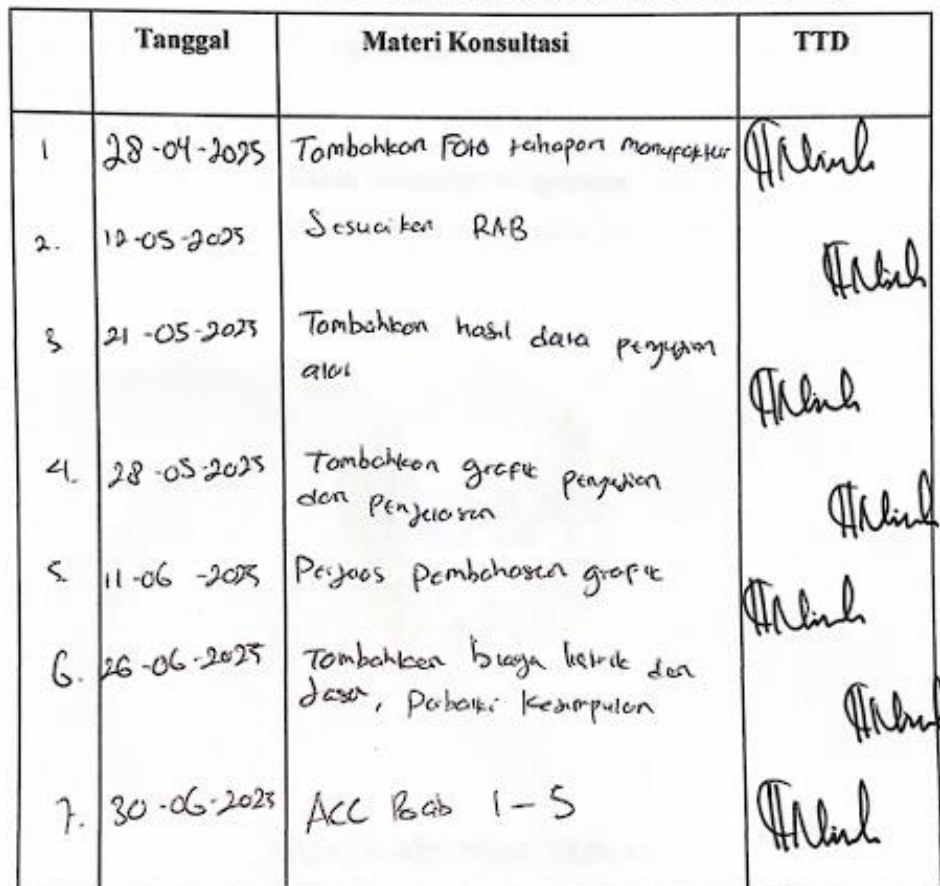 Tanggal Materi Konsultasi TTD
1 28-04-2025 Tambahkan Foto tahapan manufaktur
2. 12-05-2025 Sesuaikan RAB
3 21-05-2025 Tambahkan hasil data pengujian
alat
4. 28-05-2025 Tambahkan grafik pengujian
dan penjelasan
5. 11-06-2025 Perjelas pembahasan grafik
6. 26-06-2025 Tambahkan biaya listrik dan
Jasa, Perbaiki Kesimpulan
7. 30-06-2025 ACC Bab 1-5